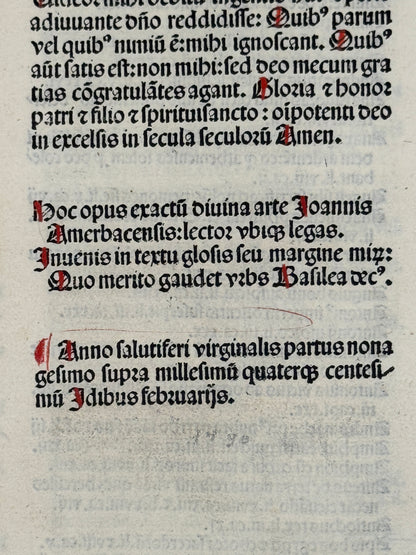 adiuuante dño reddidisse: Quibꝰ parum
vel quibꝰ nimiū ē: mihi ignoscant. Quibꝰ
aūt satis est: non mihi: sed deo mecum gra
tias cõgratulātes agant. Gloria ⁊ honor
patri ⁊ filio ⁊ spirituisancto: oīpotenti deo
in excelsis in secula seculorū Amen.
Hoc opus exactū diuina arte Joannis
Amerbacensis: lector vbiqꝫ legas.
Inuenis in textu glosis seu margine mirꝫ:
Quo merito gaudet vrbs Basilea decꝰ.
¶ Anno salutiferi virginalis partus nona
gesimo supra millesimū quaterqꝫ centesi
mū Idibus februarijs.
1490